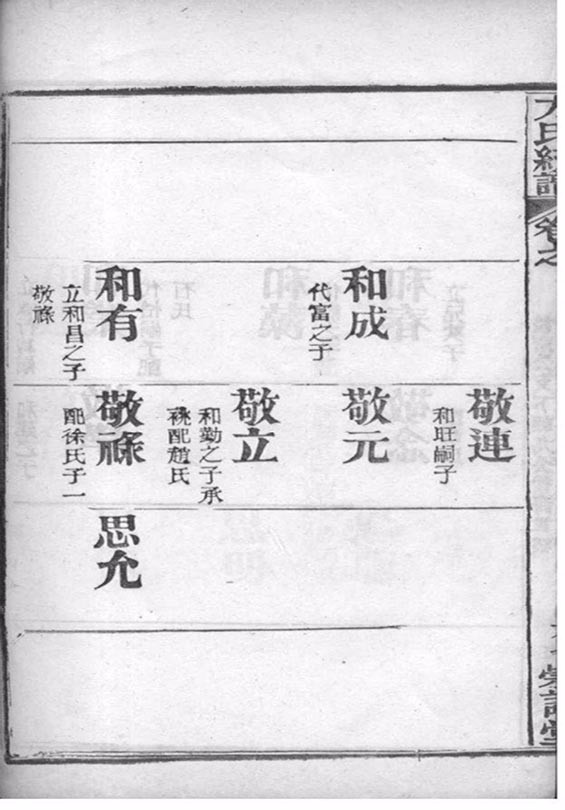 卷之
和成
代富之子
和有
立和昌之子
敬祿
敬連
和旺嗣子
敬元
敬立
和勤之子承
祧配趙氏
敬祿
配徐氏子一
思允